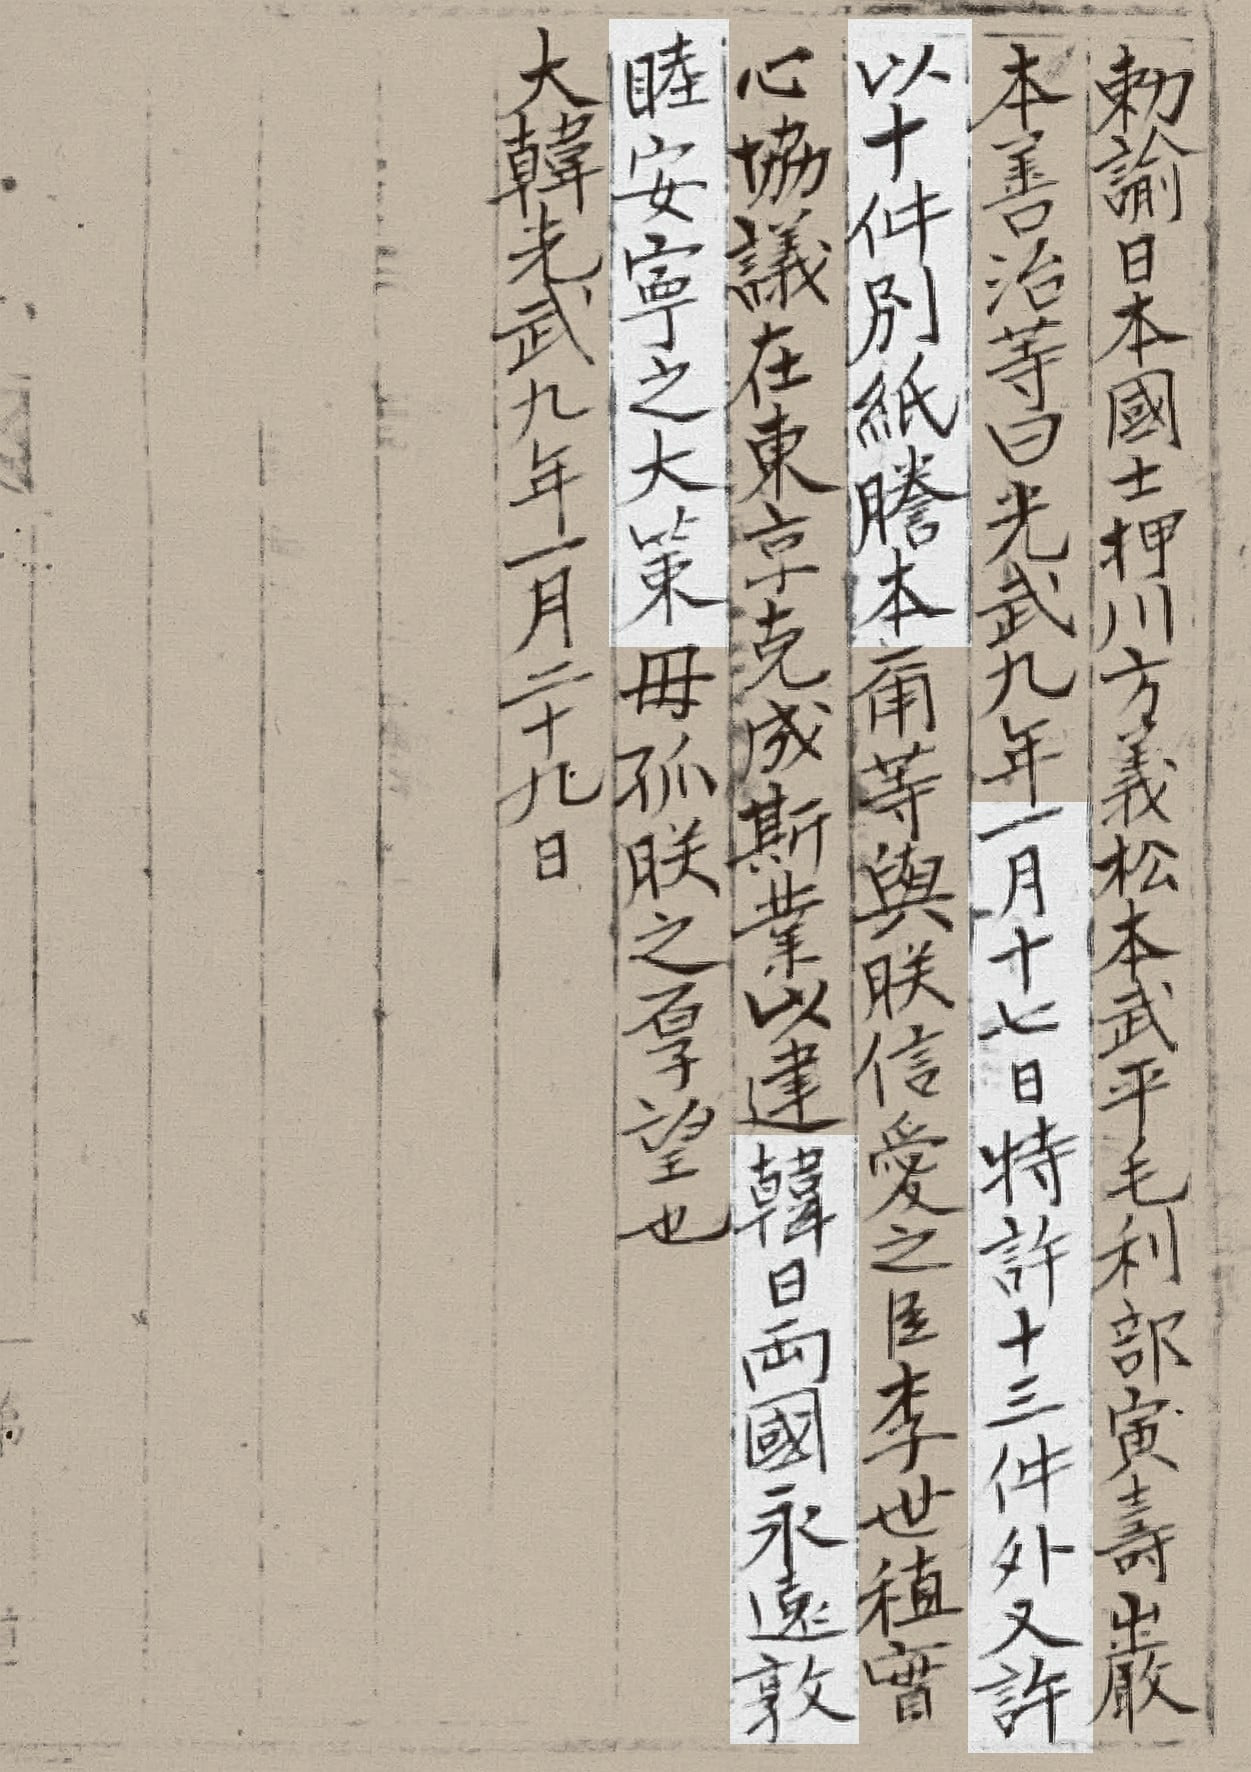 勅諭日本國士押川方義松本武平毛利部寅壽出巖
本善治等曰光武九年一月十七日特許十三件外又許
以十件別紙謄本甭等與朕信愛之臣李世稙實
心協議在東京克成斯業以建韓日兩國永遠敦
睦安寧之大策毋孤朕之厚望也
大韓光武九年一月二十九日